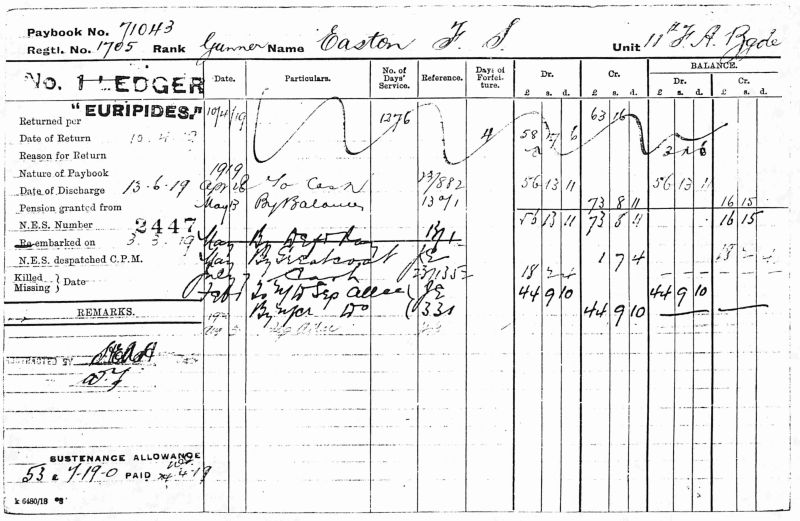 Paybook No. 71043
Regtl. No. 1705 Rank Gunner Name Easton F. S. Unit 11th F. A. Bgde
No. 1 LEDGER
Date. Particulars. No. of Days' Service. Reference. Days of Forfeiture. Dr. Cr. BALANCE.
Dr. Cr.
£ s. d. £ s. d. £ s. d. £ s. d.
Returned per "EURIPIDES." 10/4/19 1276 4 58 7 6 63 16
Date of Return 10.4.19
Reason for Return
Nature of Paybook 1919
Date of Discharge 13-6-19 Apr 28 To Cash 23/882 56 13 11 56 13 11
Pension granted from May 13 By Balance 73 8 11 16 15
N.E.S. Number 2447 56 13 11 73 8 11 16 15
Re-embarked on 3.3.19 May By Dep Pay
N.E.S. despatched C.P.M. May By Greatcoat JE 1 7 4 18 2 4
Killed Missing } Date July Cash 18 2 4
Feb To N/D Sep Allce JE 44 9 10 44 9 10
REMARKS. By Do 331 44 9 10
SUSTENANCE ALLOWANCE
53 7-19-0 PAID 4-19
k 6480/18